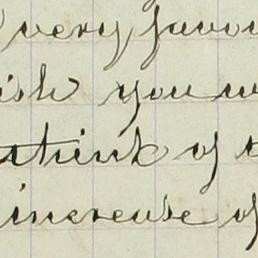 very favou
ish you w
think of
increase of